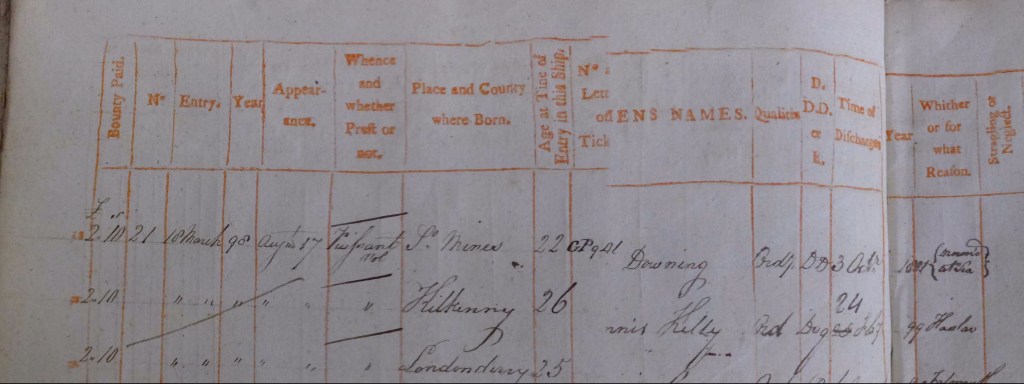 Bounty Paid. Nº Entry. Year Appear- ance. Whence and whether Prest or not. Place and County where Born. Age at Time of Entry in this Ship. Nº Lett of Tick ENS NAMES. Qualities D. D.D. or R. Time of Discharge Year Whither or for what Reason. Stragling or Neglect.
£ "
2.10 21 18 March 98 17 vol St. 22 GP 921 Downing Ordy DD 3 Octr. 1801
2.10 " " " " " " Kilkenny 26 nnis Kelly Ord 24 99 Haslar
2.10 " " " " " Londonderry 25